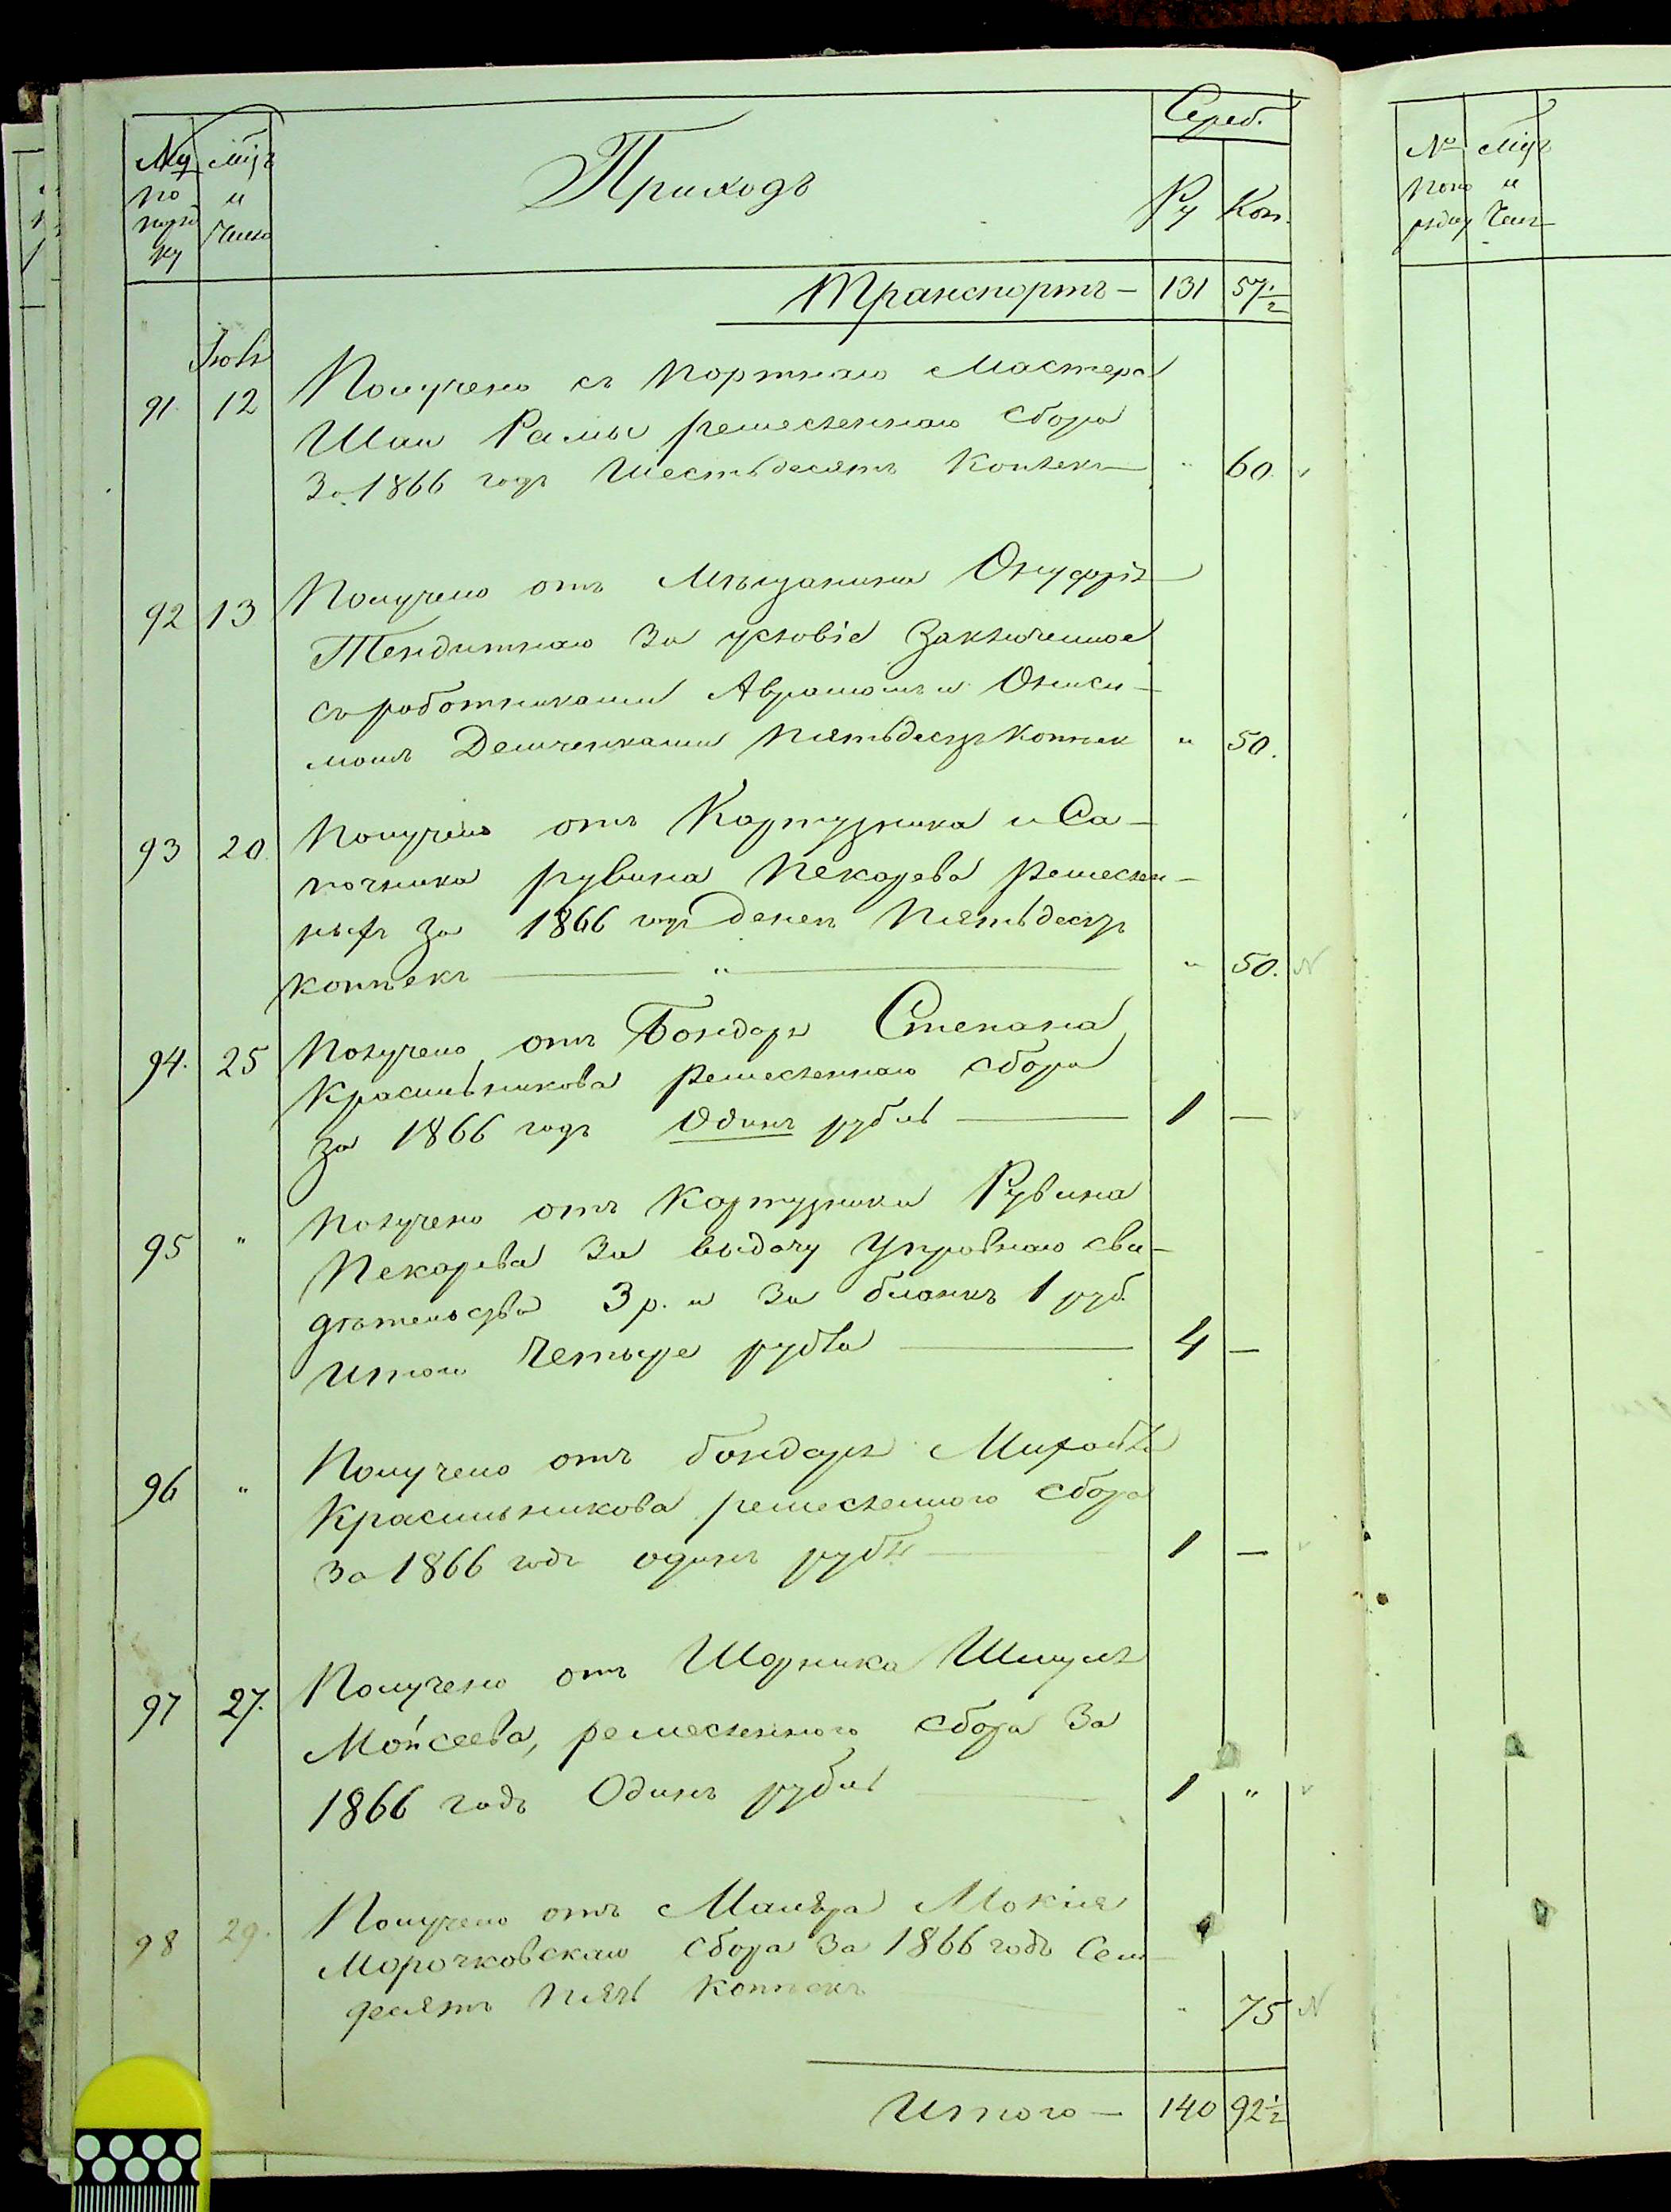 № Мцъ Приходъ Сереб.
по и Ру Коп.
поряд Число
ку
Транспортъ — 131 57 1/2
Іюль
91 12 Получено съ портнаго мастера
Шаи Рамы ремесленнаго сбора
За 1866 годъ шестьдесятъ копѣекъ " 60
92 13 Получено отъ мѣщанина Онуфрія
Тендитнаго за условіе заключенное
съ работниками Аврамомъ и Ониси-
момъ Демченками пятьдесят копѣек " 50.
93 20. Получено отъ Картузника и Са-
почника рувина Пекарева ремеслен-
ныхъ за 1866 годъ денегъ пятьдесят
копѣекъ — " — " 50.
94. 25 Получено отъ Бондаря Степана
Красильникова ремесленнаго сбора
за 1866 годъ Одинъ рубль — 1 —
95 " Получено отъ Картузника Рувина
Пекарева За выдачу Управнаго сви-
дѣтельства 3 р. и За бланкъ 1 руб.
итого Четыре рубля — 4 —
96 " Получено отъ бондаря Михайла
Красильникова ремесленного сбора
За 1866 годъ одинъ рубль — 1 —
97 27. Получено отъ Шорника Шмуля
Мойсеева, ремесленного сбора За
1866 годъ Одинъ рубль 1 "
98 29. Получено отъ Маляра Мокія
Морочковскаго сбора За 1866 годъ Сем
десятъ пять копѣекъ " 75
Итого — 140 92 1/2
№ Мцъ
попо и
рядку Числ